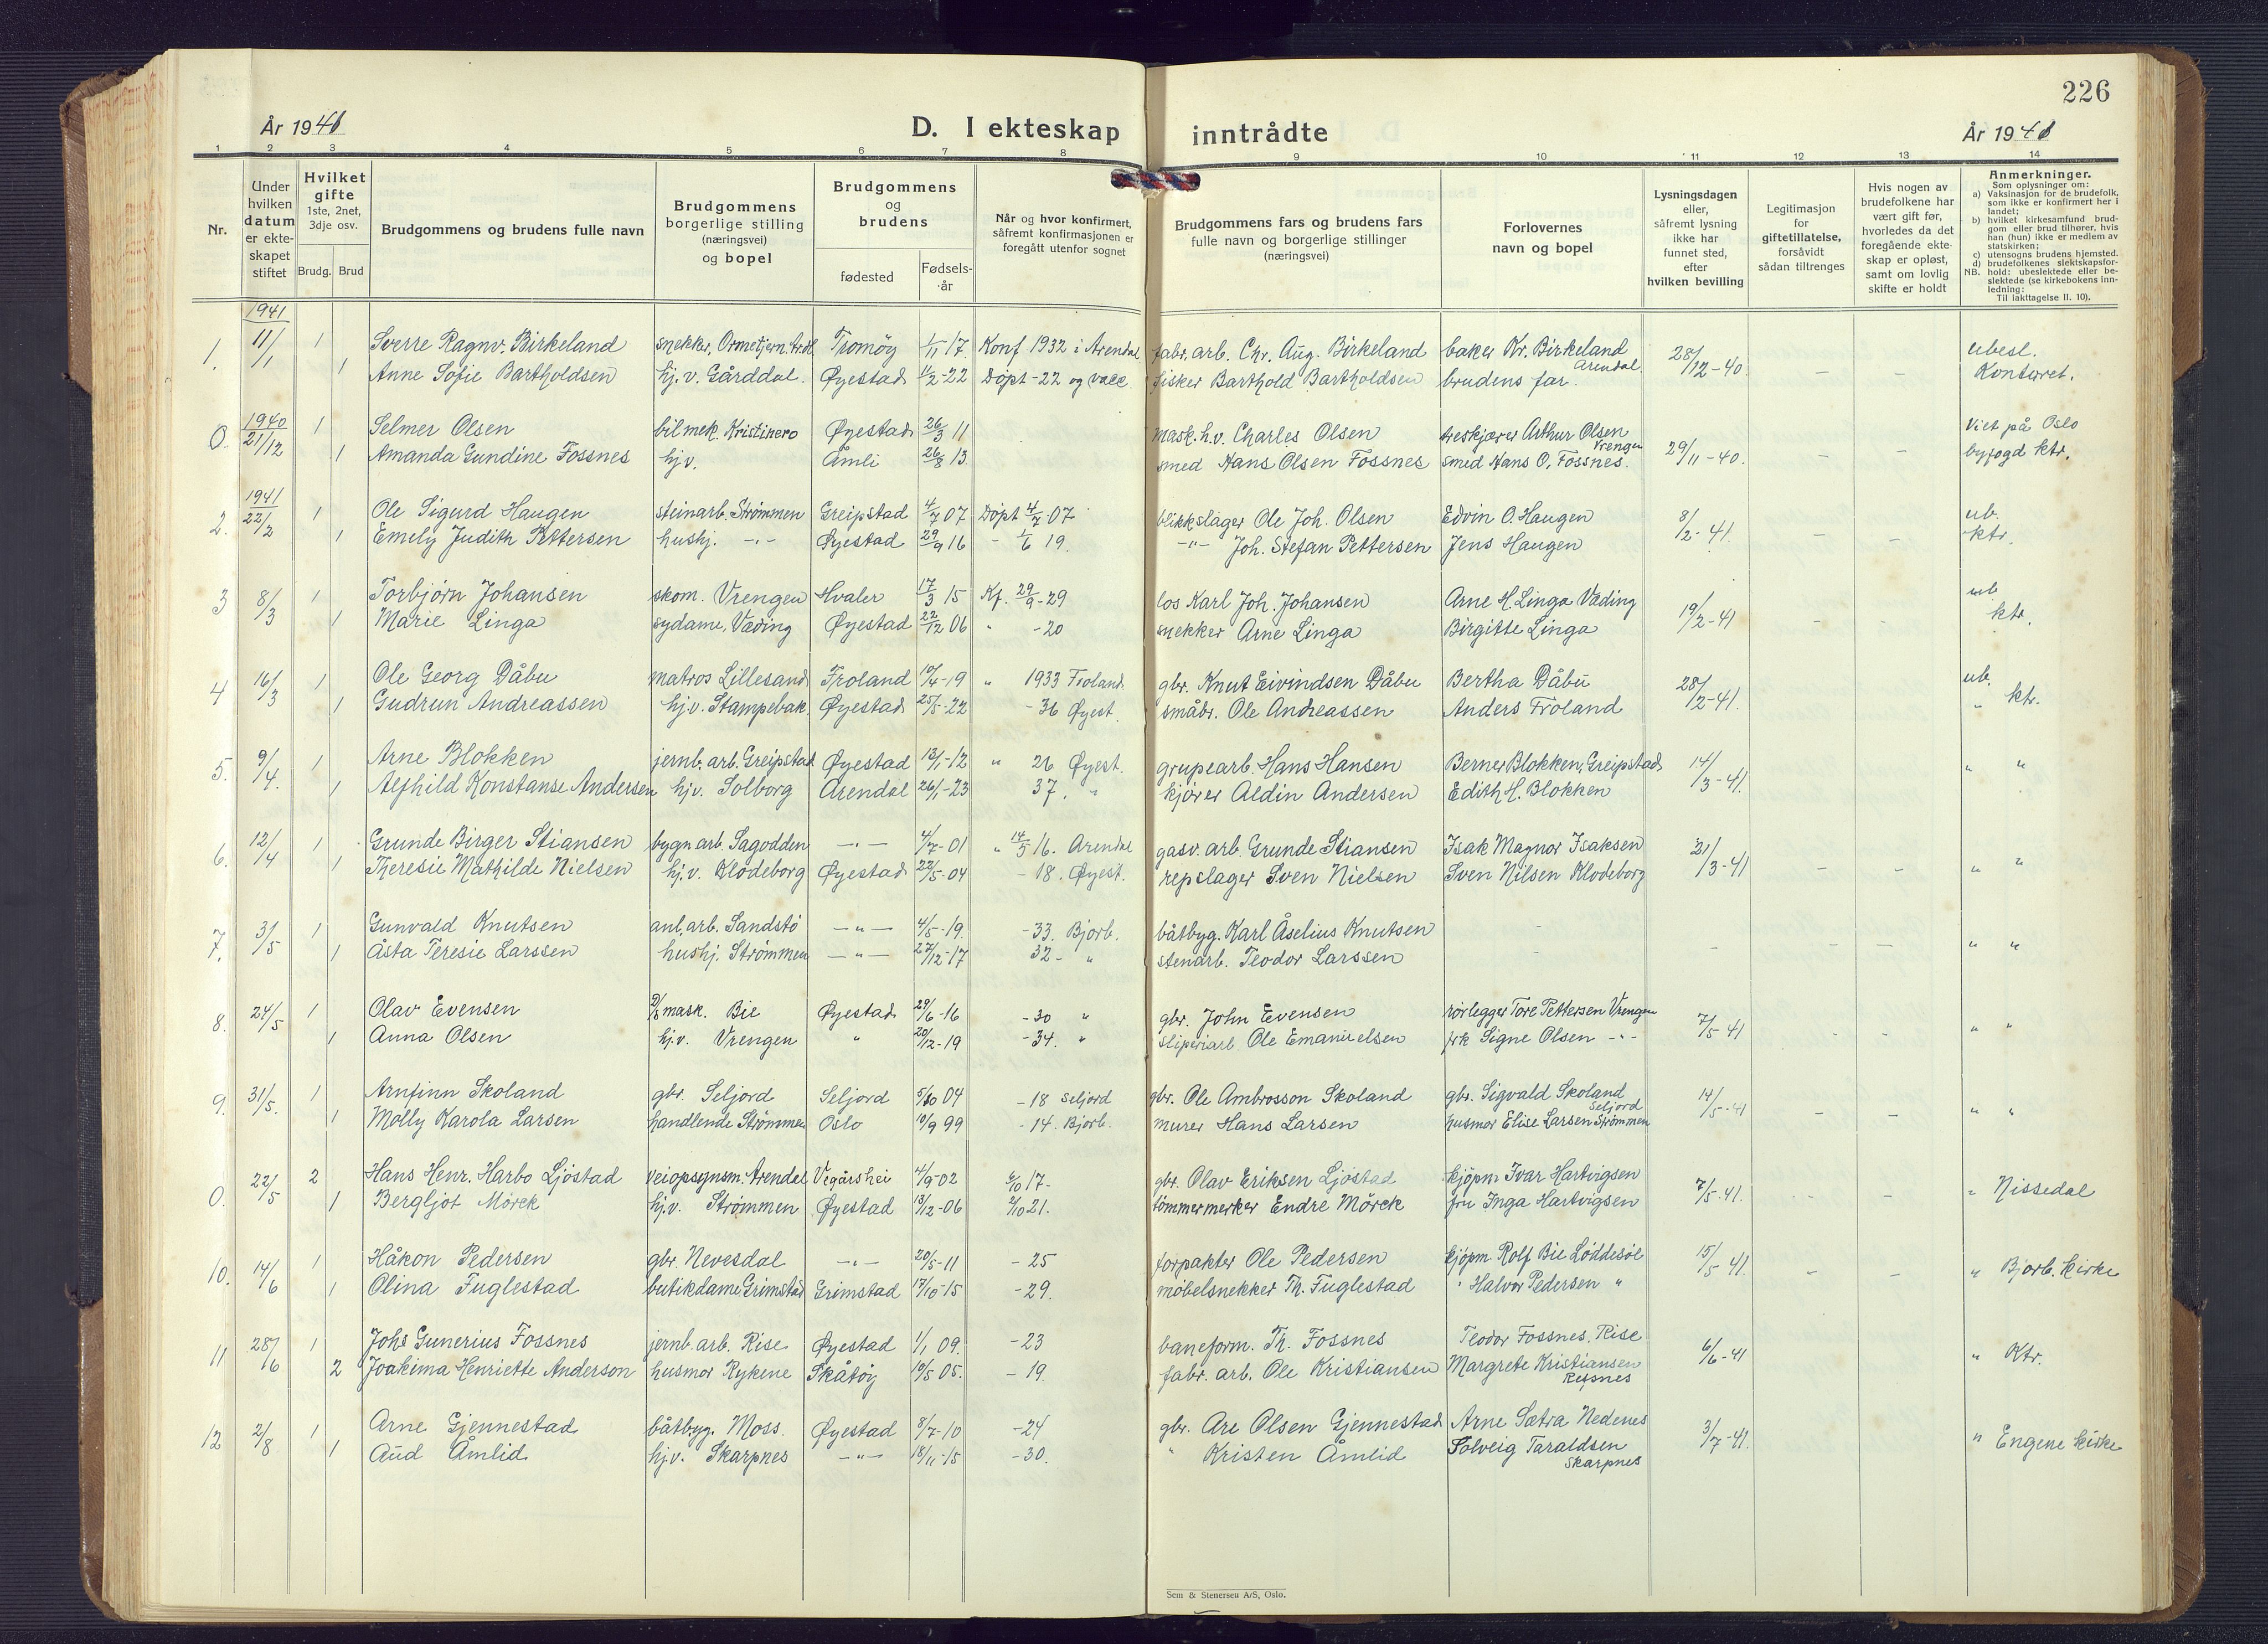 226
År 1941
D. I ekteskap inntrådte
År 1941
1 2 3 4 5 6 7 8 9 10 11 12 13 14
Nr.
Under hvilken datum er ekteskapet stiftet
Hvilket gifte 1ste, 2net, 3dje osv.
Brudg. Brud
Brudgommens og brudens fulle navn
Brudgommens borgerlige stilling (næringsvei) og bopel
Brudgommens og brudens
fødested
Fødsels-år
Når og hvor konfirmert, såfremt konfirmasjonen er foregått utenfor sognet
Brudgommens fars og brudens fars fulle navn og borgerlige stillinger (næringsvei)
Forlovernes navn og bopel
Lysningsdagen eller, såfremt lysning ikke har funnet sted, efter hvilken bevilling
Legitimasjon for giftetillatelse, forsåvidt sådan tiltrenges
Hvis nogen av brudefolkene har vært gift før, hvorledes da det foregående ekteskap er opløst, samt om lovlig skifte er holdt
Anmerkninger.
Som oplysninger om:
a) Vaksinasjon for de brudefolk, som ikke er konfirmert her i landet;
b) hvilket kirkesamfund brudgom eller brud tilhører, hvis han (hun) ikke er medlem av statskirken;
c) utensogns brudens hjemsted.
d) brudefolkenes slektskapsforhold: ubeslektede eller beslektede (se kirkebokens innledning:
NB. Til iakttagelse II. 10).
1941
1. 11/1 1 Sverre Ragnv. Birkeland snekker, Ormetjern. Ardl Tromøy 1/11 17 Konf 1932 i Arendal fabr. arb. Chr. Aug. Birkeland baker Kr. Birkeland Arendal. 28/12-40 ubesl.
1 Anne Sofie Bartholdsen hj.v. Gårddal. Øyestad 11/2-22 Døpt -22 og vacc. fisker Barthold Bartholdsen brudens far. Kontoret.
1940
0. 21/12 1 Selmer Olsen bilmek. Kristinero Øyestad 26/3 11 mask. h.v. Charles Olsen treskjærer Arthur Olsen Vrengen 29/11-40. Viet på Oslo
1 Amanda Gundine Fossnes hj.v. Åmli 26/8 13 smed Hans Olsen Fossnes smed Hans O. Fossnes. byfogd ktr.
1941
2. 22/2 1 Ole Sigurd Haugen steinarb. Strømmen Greipstad 4/7 07 Døpt 4/7-07 blikkslager Ole Joh. Olsen Edvin O. Haugen 8/2-41. ub.
1 Emely Judith Pettersen hushj. -"- Øyestad 29/9 16 - 1/6 19. -"- Joh. Stefan Pettersen Jens Haugen ktr.
3 8/3 1 Torbjørn Johansen skom. Vrengen Hvaler 17/3 15 Kf. 29/9-29 los Karl Joh. Johansen Arne H. Linga Væding 19/2-41 ub
1 Marie Linga sydame, Væding Øyestad 22/12 06 " -20 snekker Arne Linga Birgitte Linga ktr.
4 16/3 1 Ole Georg Dåbu matros Lillesand Froland 10/4-19 " 1933 Froland. gbr. Knut Eivindsen Dåbu Bertha Dåbu 28/2-41. ub.
1 Gudrun Andreassen hj.v. Stampebak Øyestad 25/5-22 -36 Øyest. småbr. Ole Andreassen Anders Froland " ktr.
5. 9/4. 1 Arne Blokken jernb. arb. Greipstad Øyestad 13/1-12 " 26 Øyest. grupearb. Hans Hansen Berner Blokken, Greipstad 14/3-41. " "
1 Alfhild Konstanse Andersen hj.v. Solborg Arendal 26/1-23 37. " kjører Aldin Andersen Edith H. Blokken
6. 12/4 1 Grunde Birger Stiansen bygn arb. Sagodden -"- 4/7-01 " 14/5 16. Arendal gasv. arb. Grunde Stiansen Isak Magnor Isaksen 21/3-41 " "
1 Theresie Mathilde Nielsen hj.v. Klodeborg Øyestad 22/5-04 -18. Øyest. repslager Sven Nielsen Sven Nilsen Klodeborg
7. 31/5 1 Gunvald Knutsen anl. arb. Sandstø -"- 4/5-19. -33. Bjorb. båtbyg. Karl Åselius Knutsen - - " "
1 Åsta Teresie Larssen hushj. Strømmen -"- 27/12-17 32- " stenarb. Teodor Larssen
8. 24/5 1 Olav Evensen mask. Bie Øyestad 29/6-16 -30 " gbr. John Evensen rørlegger Tore Pettersen Vrengen 7/5-41 " "
1 Anna Olsen hj.v. Vrengen " 20/12-19 -34. " sliperiarb. Ole Emanuelsen frk Signe Olsen -"-
9. 31/5. 1 Arnfinn Skoland gbr. Seljord Seljord 5/10 04 -18 Seljord gbr. Ole Ambrosson Skoland gbr. Sigvald Skoland Seljord 14/5-41 " "
1 Molly Karola Larsen handlende Strømmen Oslo 10/9 99 -14. Bjorb. murer Hans Larsen husmor Elise Larsen Strømmen
0. 22/5 2 Hans Henr. Harbo Ljøstad veiopsynsm. Arendal Vegårshei 4/9-02 6/10 17- gbr. Olav Eriksen Ljøstad kjøpm. Ivar Hartvigsen 7/5-41. " Nissedal
1 Bergljot Mørck hj.v. Strømmen Øyestad 13/12-06 2/10 21. tømmermerker Endre Mørck fru Inga Hartvigsen
10. 14/6 1 Håkon Pedersen gbr. Nevesdal -"- 20/5-11 -25 forpakter Ole Pedersen kjøpm. Rolf Bie Løddesøl 15/5 41. " Bjorb. kirke
1 Olina Fuglestad butikdame Grimstad Grimstad 17/10-15 -29. møbelsnekker Th. Fuglestad " Halvor Pedersen "
11 28/6 1 Johs Gunerius Fossnes jernb. arb. Rise Øyestad 1/1 09. -23 baneform. Th. Fossnes Teodor Fossnes. Rise 6/6-41 " Ktr.
2 Joakima Henriette Anderson husmor Rykene Skåtøy 10/5 05. -19. fabr. arb. Ole Kristiansen Margrete Kristiansen Refsnes
12 2/8 1 Arne Gjennestad båtbyg. Moss. Øyestad 8/7-10 -24 gbr. Are Olsen Gjennestad Arne Sætra Nedenes 3/7-41. " Engene kirke
1 Aud Åmlid hj.v. Skarpnes -"- 18/11-15 -30. " Kristen Åmlid Solveig Taraldsen Skarpnes
Sem & Stenersen A/S, Oslo.